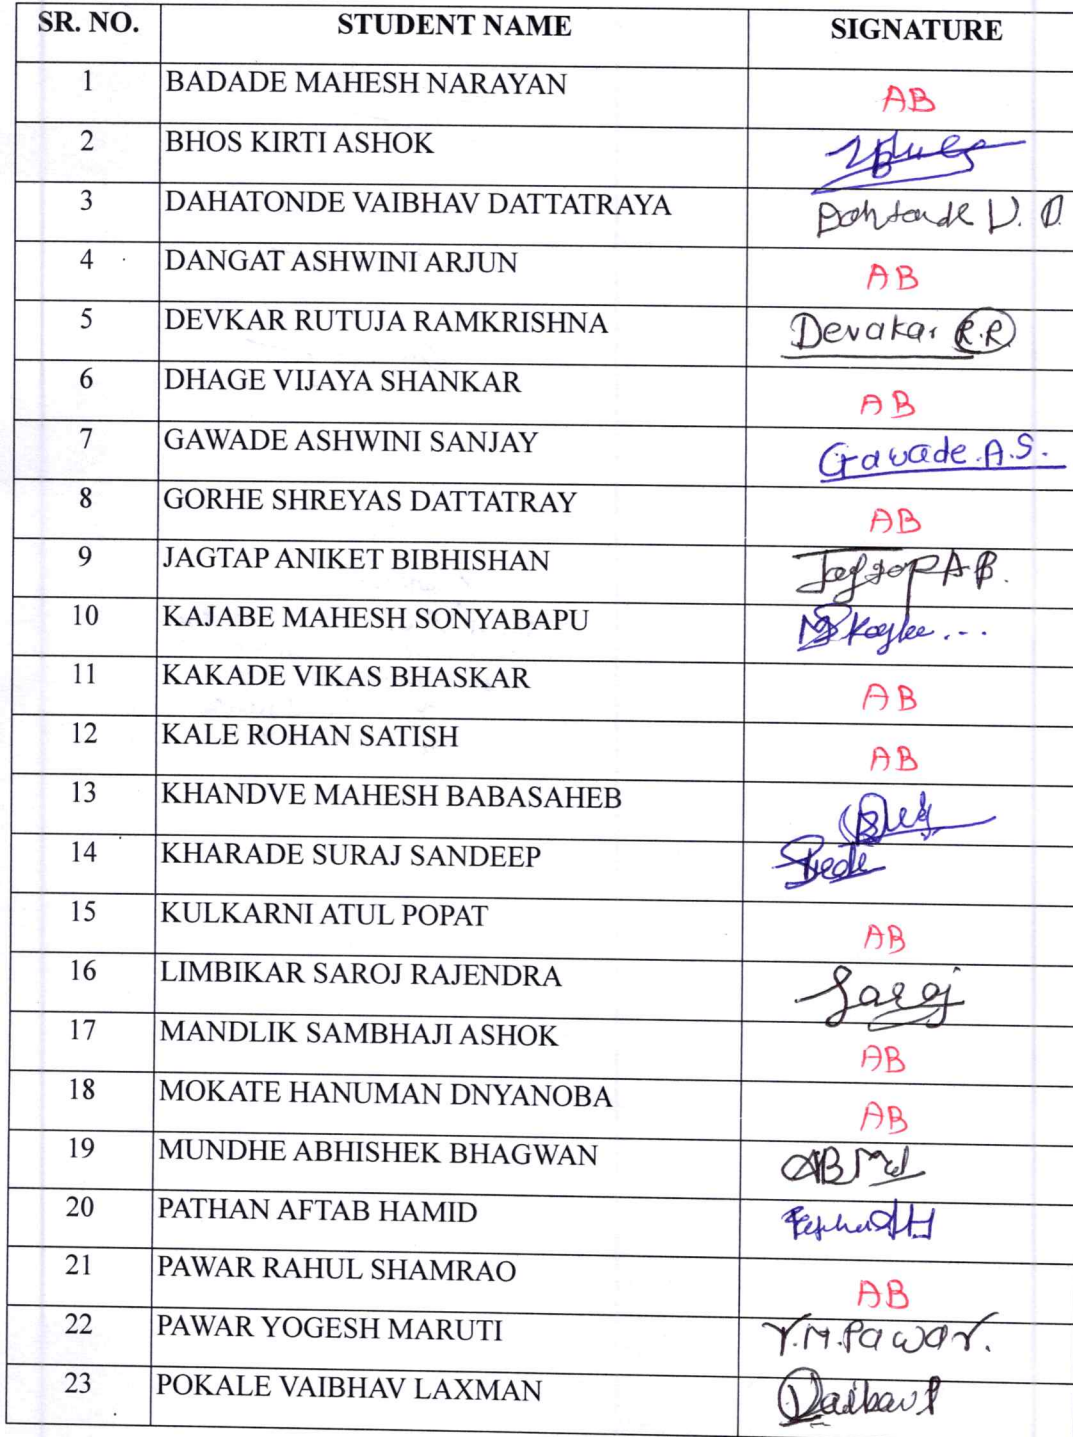 SR. NO. STUDENT NAME SIGNATURE
1 BADADE MAHESH NARAYAN AB
2 BHOS KIRTI ASHOK
3 DAHATONDE VAIBHAV DATTATRAYA Dahtonde V. D.
4 DANGAT ASHWINI ARJUN AB
5 DEVKAR RUTUJA RAMKRISHNA Devakar R.R
6 DHAGE VIJAYA SHANKAR AB
7 GAWADE ASHWINI SANJAY Gawade.A.S.
8 GORHE SHREYAS DATTATRAY AB
9 JAGTAP ANIKET BIBHISHAN Jagtap A.B.
10 KAJABE MAHESH SONYABAPU
11 KAKADE VIKAS BHASKAR AB
12 KALE ROHAN SATISH AB
13 KHANDVE MAHESH BABASAHEB
14 KHARADE SURAJ SANDEEP
15 KULKARNI ATUL POPAT AB
16 LIMBIKAR SAROJ RAJENDRA Saroj
17 MANDLIK SAMBHAJI ASHOK AB
18 MOKATE HANUMAN DNYANOBA AB
19 MUNDHE ABHISHEK BHAGWAN
20 PATHAN AFTAB HAMID
21 PAWAR RAHUL SHAMRAO AB
22 PAWAR YOGESH MARUTI Y.M.Pawar.
23 POKALE VAIBHAV LAXMAN